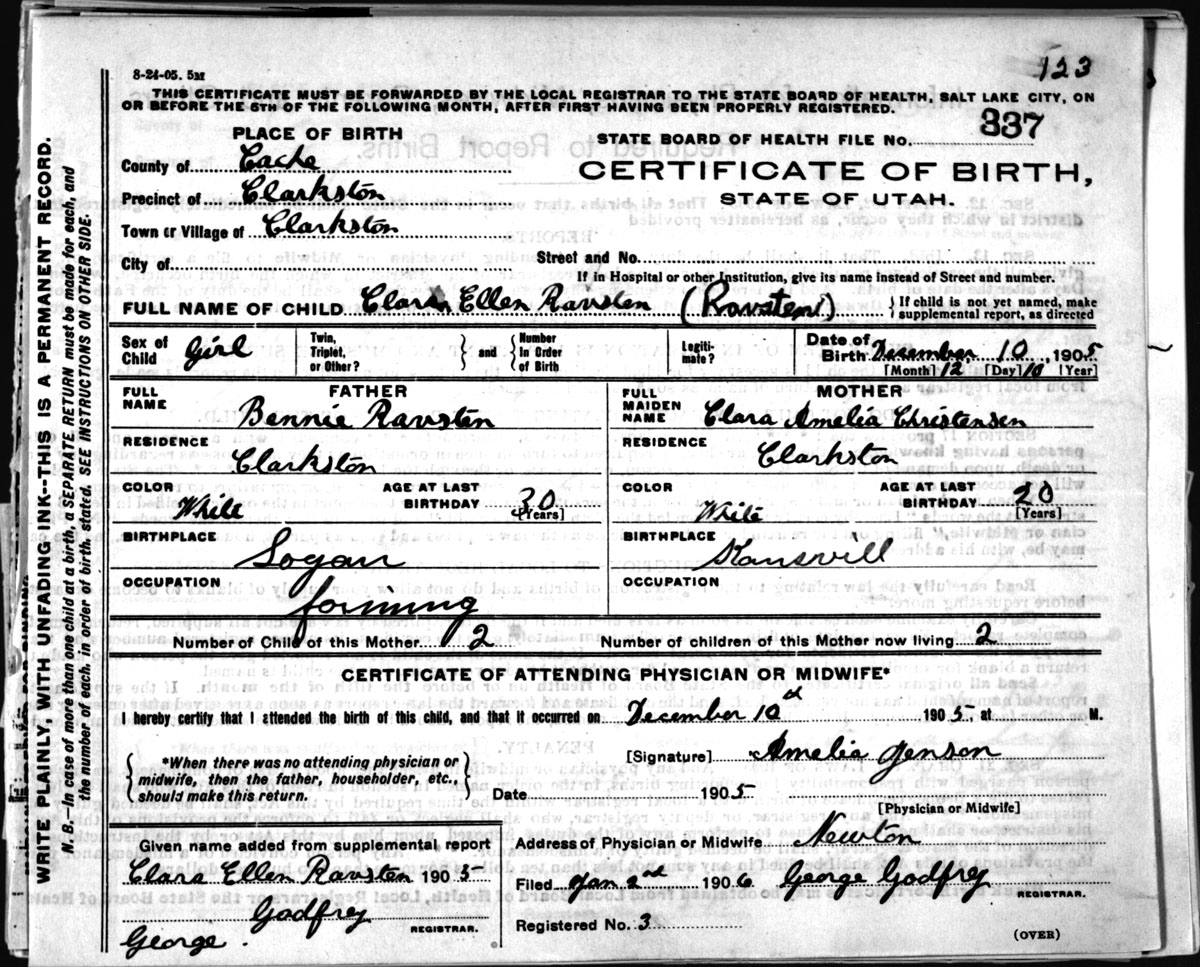 123
8-24-05. 5M
THIS CERTIFICATE MUST BE FORWARDED BY THE LOCAL REGISTRAR TO THE STATE BOARD OF HEALTH, SALT LAKE CITY, ON
OR BEFORE THE 5TH OF THE FOLLOWING MONTH, AFTER FIRST HAVING BEEN PROPERLY REGISTERED.
PLACE OF BIRTH
STATE BOARD OF HEALTH FILE NO. 337
County of Cache
CERTIFICATE OF BIRTH,
Precinct of Clarkston
STATE OF UTAH.
Town or Village of Clarkston
City of Street and No.
If in Hospital or other Institution, give its name instead of Street and number.
FULL NAME OF CHILD Clara Ellen Ravsten (Ravsten) } If child is not yet named, make
supplemental report, as directed
Sex of Child Girl Twin, Triplet, or Other? } and { Number in Order of Birth Legiti- mate? Date of Birth December 10, 1905
[Month] 12 [Day] 10 [Year]
FULL NAME FATHER Bennie Ravsten
FULL MAIDEN NAME MOTHER Clara Amelia Christensen
RESIDENCE Clarkston
RESIDENCE Clarkston
COLOR White AGE AT LAST BIRTHDAY 30 [Years]
COLOR White AGE AT LAST BIRTHDAY 20 [Years]
BIRTHPLACE Logan
BIRTHPLACE Kansvill
OCCUPATION farming
OCCUPATION
Number of Child of this Mother 2 Number of children of this Mother now living 2
CERTIFICATE OF ATTENDING PHYSICIAN OR MIDWIFE*
I hereby certify that I attended the birth of this child, and that it occurred on December 10 1905, at M.
{ *When there was no attending physician or
midwife, then the father, householder, etc.,
should make this return. }
[Signature] Amelia Jenson
Date 1905
[Physician or Midwife]
Given name added from supplemental report
Clara Ellen Ravsten 1905
Godfrey REGISTRAR.
George.
Address of Physician or Midwife Newton
Filed Jan 2nd 1906 George Godfrey
REGISTRAR.
Registered No. 3
(OVER)
WRITE PLAINLY, WITH UNFADING INK--THIS IS A PERMANENT RECORD.
N. B.--In case of more than one child at a birth, a SEPARATE RETURN must be made for each, and
the number of each, in order of birth, stated. SEE INSTRUCTIONS ON OTHER SIDE.